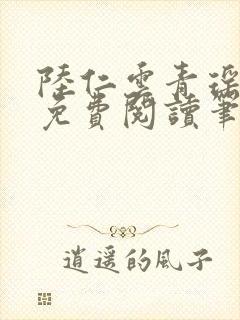 陸仁雲青瑤
免費閱讀筆
逍遙的風子